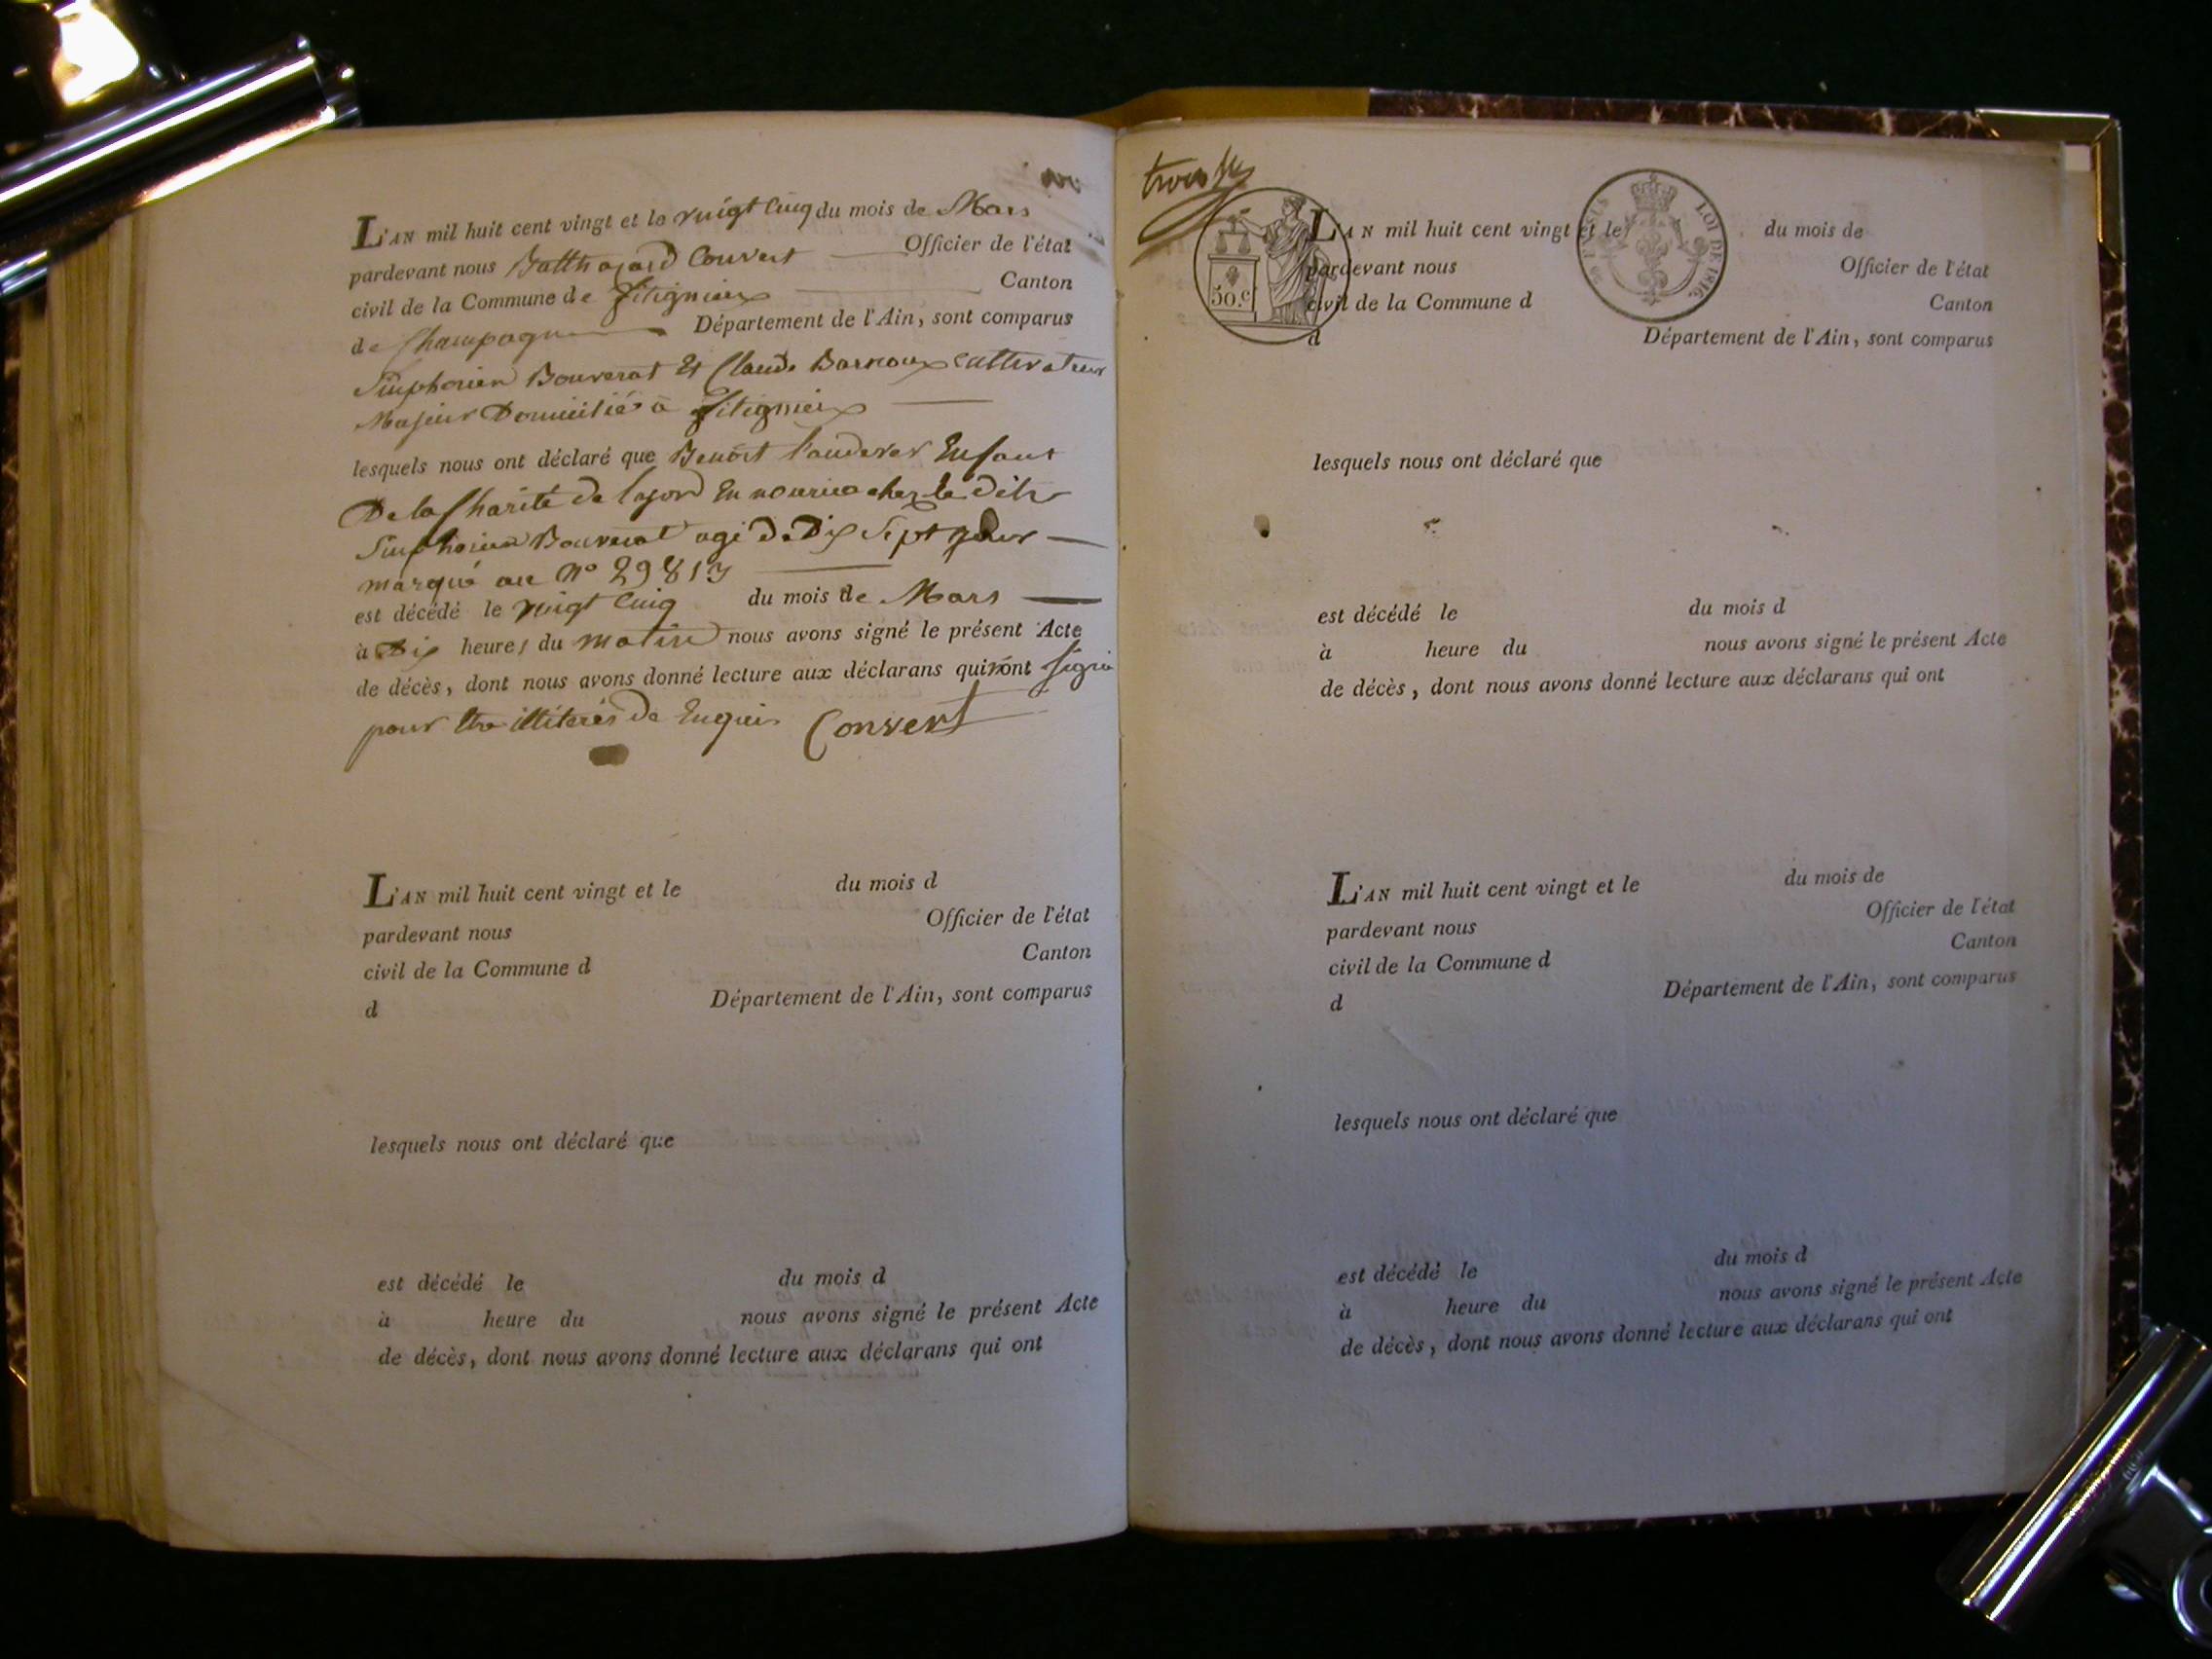 L'AN mil huit cent vingt et le vingt cinq du mois de Mars
pardevant nous Balthazard Convert Officier de l'état
civil de la Commune de fitignieux Canton
de Champagne Département de l'Ain, sont comparus
Simphorien Bouverat Et Claude cultivateur
Majeur Domicilié à fitignieux
lesquels nous ont déclaré que Benoit Enfant
De la Charité de en chez le dit
Simphorien Bouverat agé De Dix Sept
marqué au No 2981
est décédé le vingt cinq du mois de Mars
à Dix heures du matin nous avons signé le présent Acte
de décès, dont nous avons donné lecture aux déclarans qui n'ont signé
pour être illiterés de Enquis Convert
L'AN mil huit cent vingt et le du mois d
pardevant nous Officier de l'état
civil de la Commune d Canton
d Département de l'Ain, sont comparus
lesquels nous ont déclaré que
est décédé le du mois d
à heure du nous avons signé le présent Acte
de décès, dont nous avons donné lecture aux déclarans qui ont
50.c
LOI DE 1816.
L'AN mil huit cent vingt et le du mois de
pardevant nous Officier de l'état
civil de la Commune d Canton
d Département de l'Ain, sont comparus
lesquels nous ont déclaré que
est décédé le du mois d
à heure du nous avons signé le présent Acte
de décès, dont nous avons donné lecture aux déclarans qui ont
L'AN mil huit cent vingt et le du mois de
pardevant nous Officier de l'état
civil de la Commune d Canton
d Département de l'Ain, sont comparus
lesquels nous ont déclaré que
est décédé le du mois d
à heure du nous avons signé le présent Acte
de décès, dont nous avons donné lecture aux déclarans qui ont